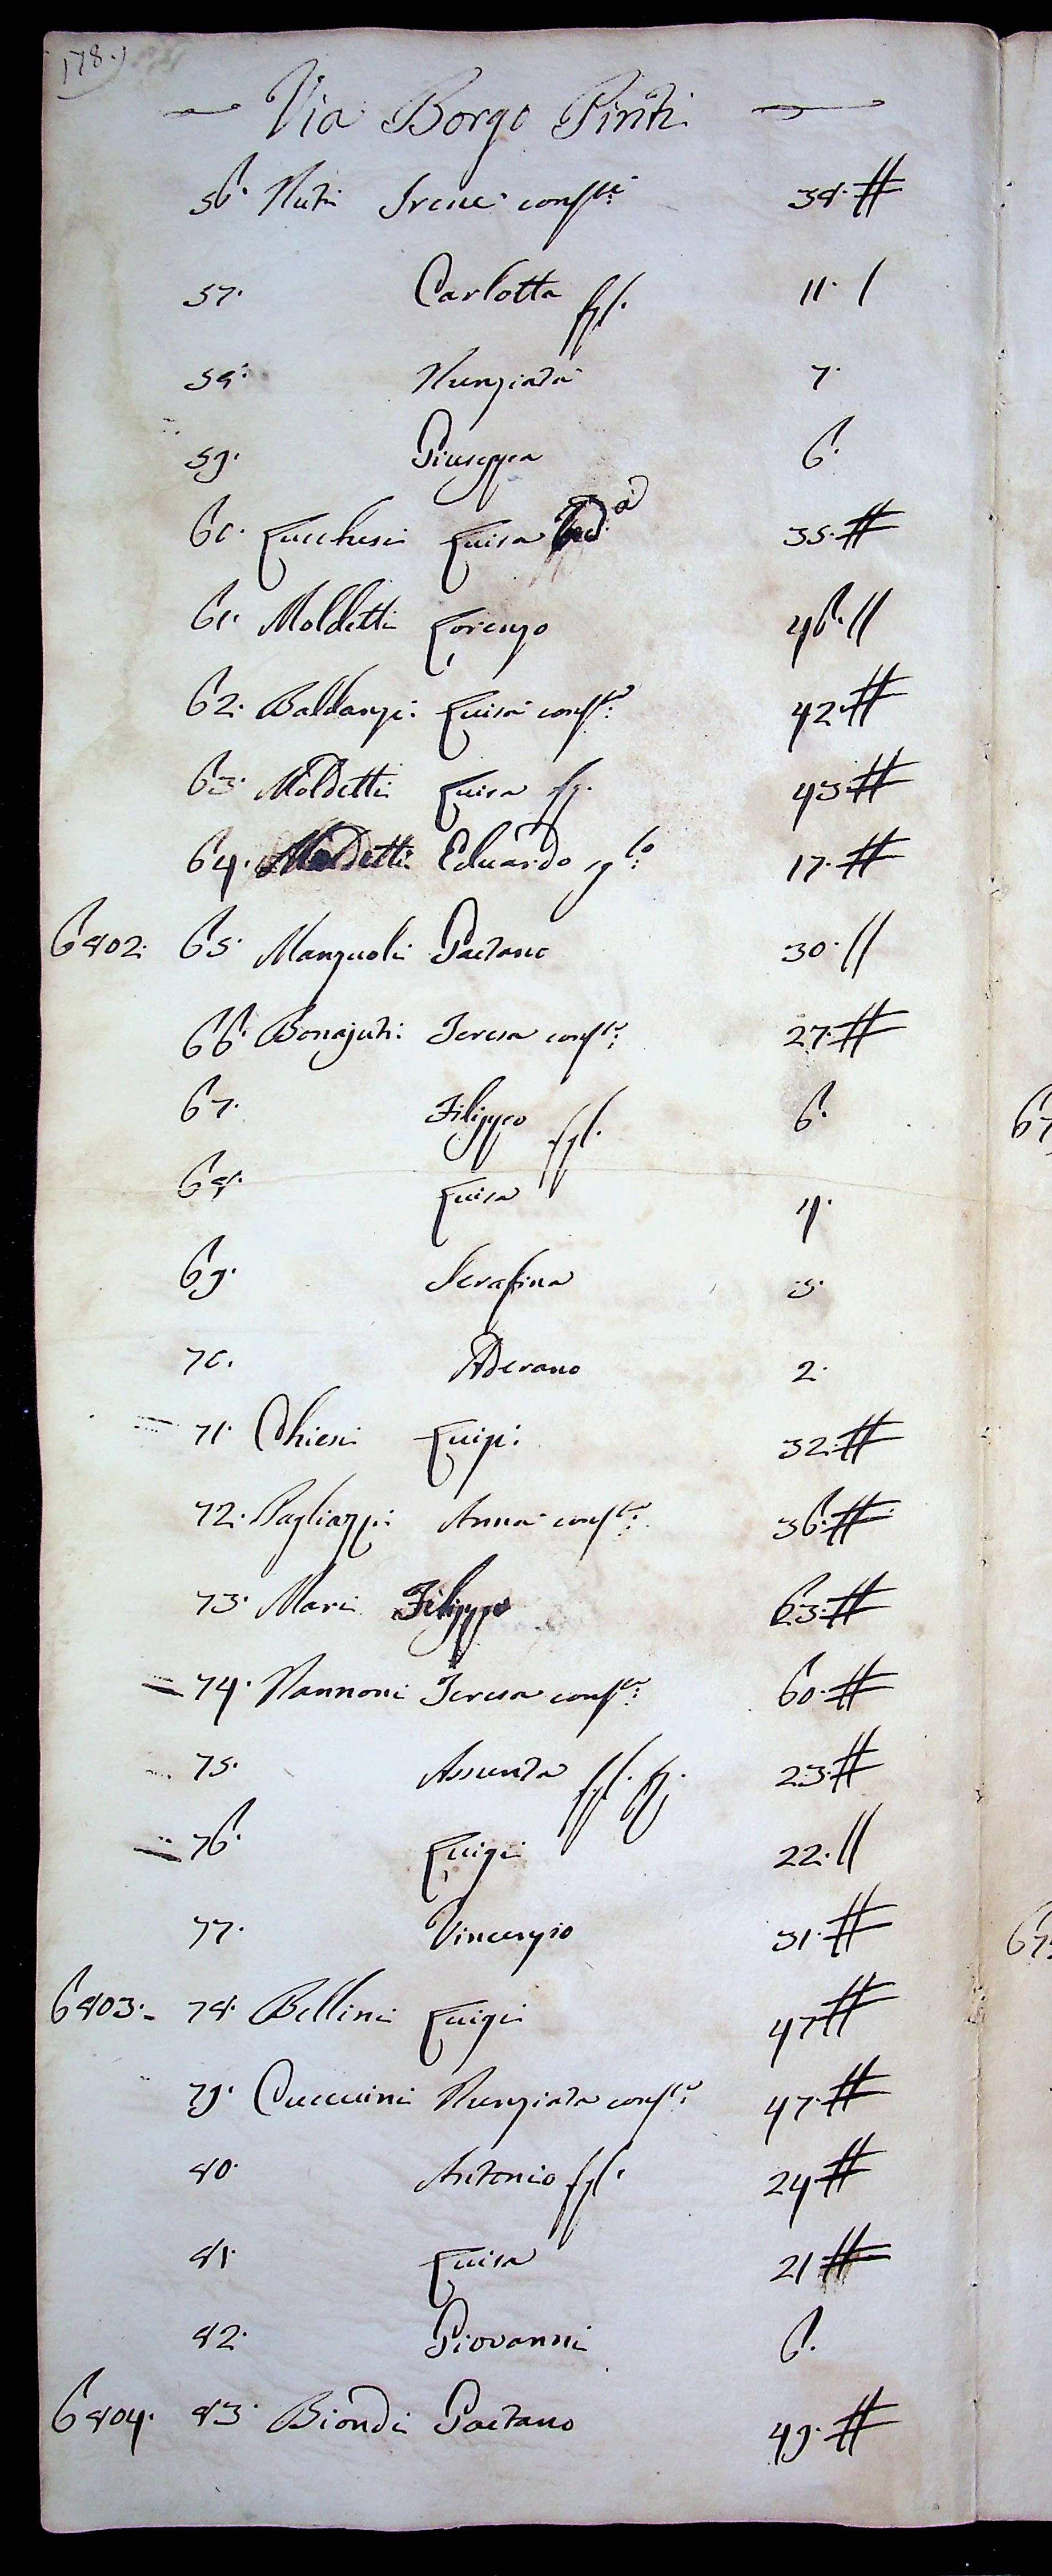 178.
Via Borgo Pinti
56. Nuti Irene conſte 38. #
57. Carlotta ffl. 11. /
58. Nunziata 7.
59. Giuseppa 6.
60. Lucchesi Luisa Veda 35. #
61. Moldetti Lorenzo 46. //
62. Baldanzi Luisa conſte: 42. #
63. Moldetti Luisa fg. 43. #
64. Moldetti Eduardo glo: 17. #
6802. 65. Manzuoli Gaetano 30. //
66. Bonajuti Teresa conſte: 27. #
67. Filippo ffl. 6.
68. Luisa 4.
69. Serafina 3.
70. Aderano 2.
71. Chiesi Luigi 32. #
72. Pagliazzi Anna conſte: 36. #
73. Mari Filippo 63. #
74. Nannoni Teresa conſte: 60. #
75. Assunta ffl. fg. 23. #
76. Luigi 22. //
77. Vincenzio 31. #
6803. 78. Bellini Luigi 47 #
79. Cuccuini Nunziata conſte: 47. #
80. Antonio ffl. 24. #
81. Luisa 21 #
82. Giovanni 6.
6804. 83. Biondi Gaetano 49. #
67